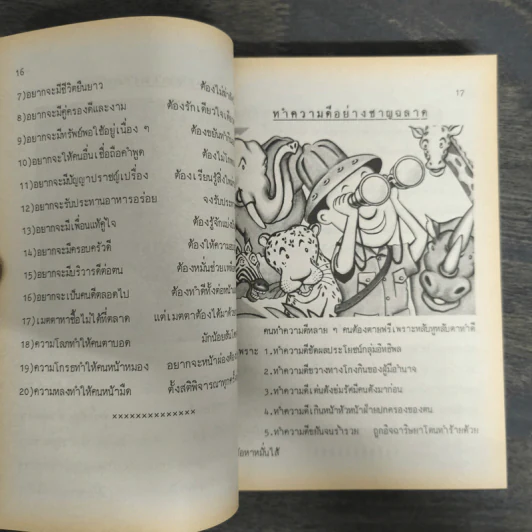 16
7)อยากจะมีชีวิตยืนยาว ต้องไม่
8)อยากจะมีคู่ครองดีและงาม ต้องรักเดียวใจเดียว
9)อยากจะมีทรัพย์พอใช้อยู่เนื่อง ๆ ต้องขยัน
10)อยากจะให้คนอื่นเชื่อถือคำพูด ต้องไม่
11)อยากจะมีปัญญาปราชญ์เปรื่อง ต้องเรียนรู้สิ่งใหม่
12)อยากจะรับประทานอาหารอร่อย จงรับประ
13)อยากจะมีเพื่อนแท้คู่ใจ ต้องรู้จักแบ่ง
14)อยากจะมีครอบครัวดี ต้องให้ความ
15)อยากจะมีบริวารดีต่อตน ต้องหมั่นช่วยเหลือ
16)อยากจะเป็นคนดีตลอดไป ต้องทำดีทั้งต่อหน้า
17)เมตตาหาซื้อไม่ได้ที่ตลาด แต่เมตตาต้องได้มาด้วย
18)ความโลภทำให้คนตาบอด มักน้อยสันโดษ
19)ความโกรธทำให้คนหน้าหมอง อยากจะหน้าผ่อง
20)ความหลงทำให้คนหน้ามืด ตั้งสติพิจารณาทุกครั้ง
xxxxxxxxxxxxx
17
ทำความดีอย่างชาญฉลาด
คนทำความดีหลาย ๆ คนต้องตายฟรีเพราะหลับหูหลับตาทำดี
เพราะ 1.ทำความดีขัดผลประโยชน์กลุ่มอิทธิพล
2.ทำความดีขวางทางโกงกินของผู้มีอำนาจ
3.ทำความดีเด่นดังข่มรัศมีคนดังมาก่อน
4.ทำความดีเกินหน้าหัวหน้าฝ่ายปกครองของตน
5.ทำความดีขยันจนร่ำรวย ถูกอิจฉาริษยาโดนทำร้ายด้วย
ข้อหาหมั่นไส้